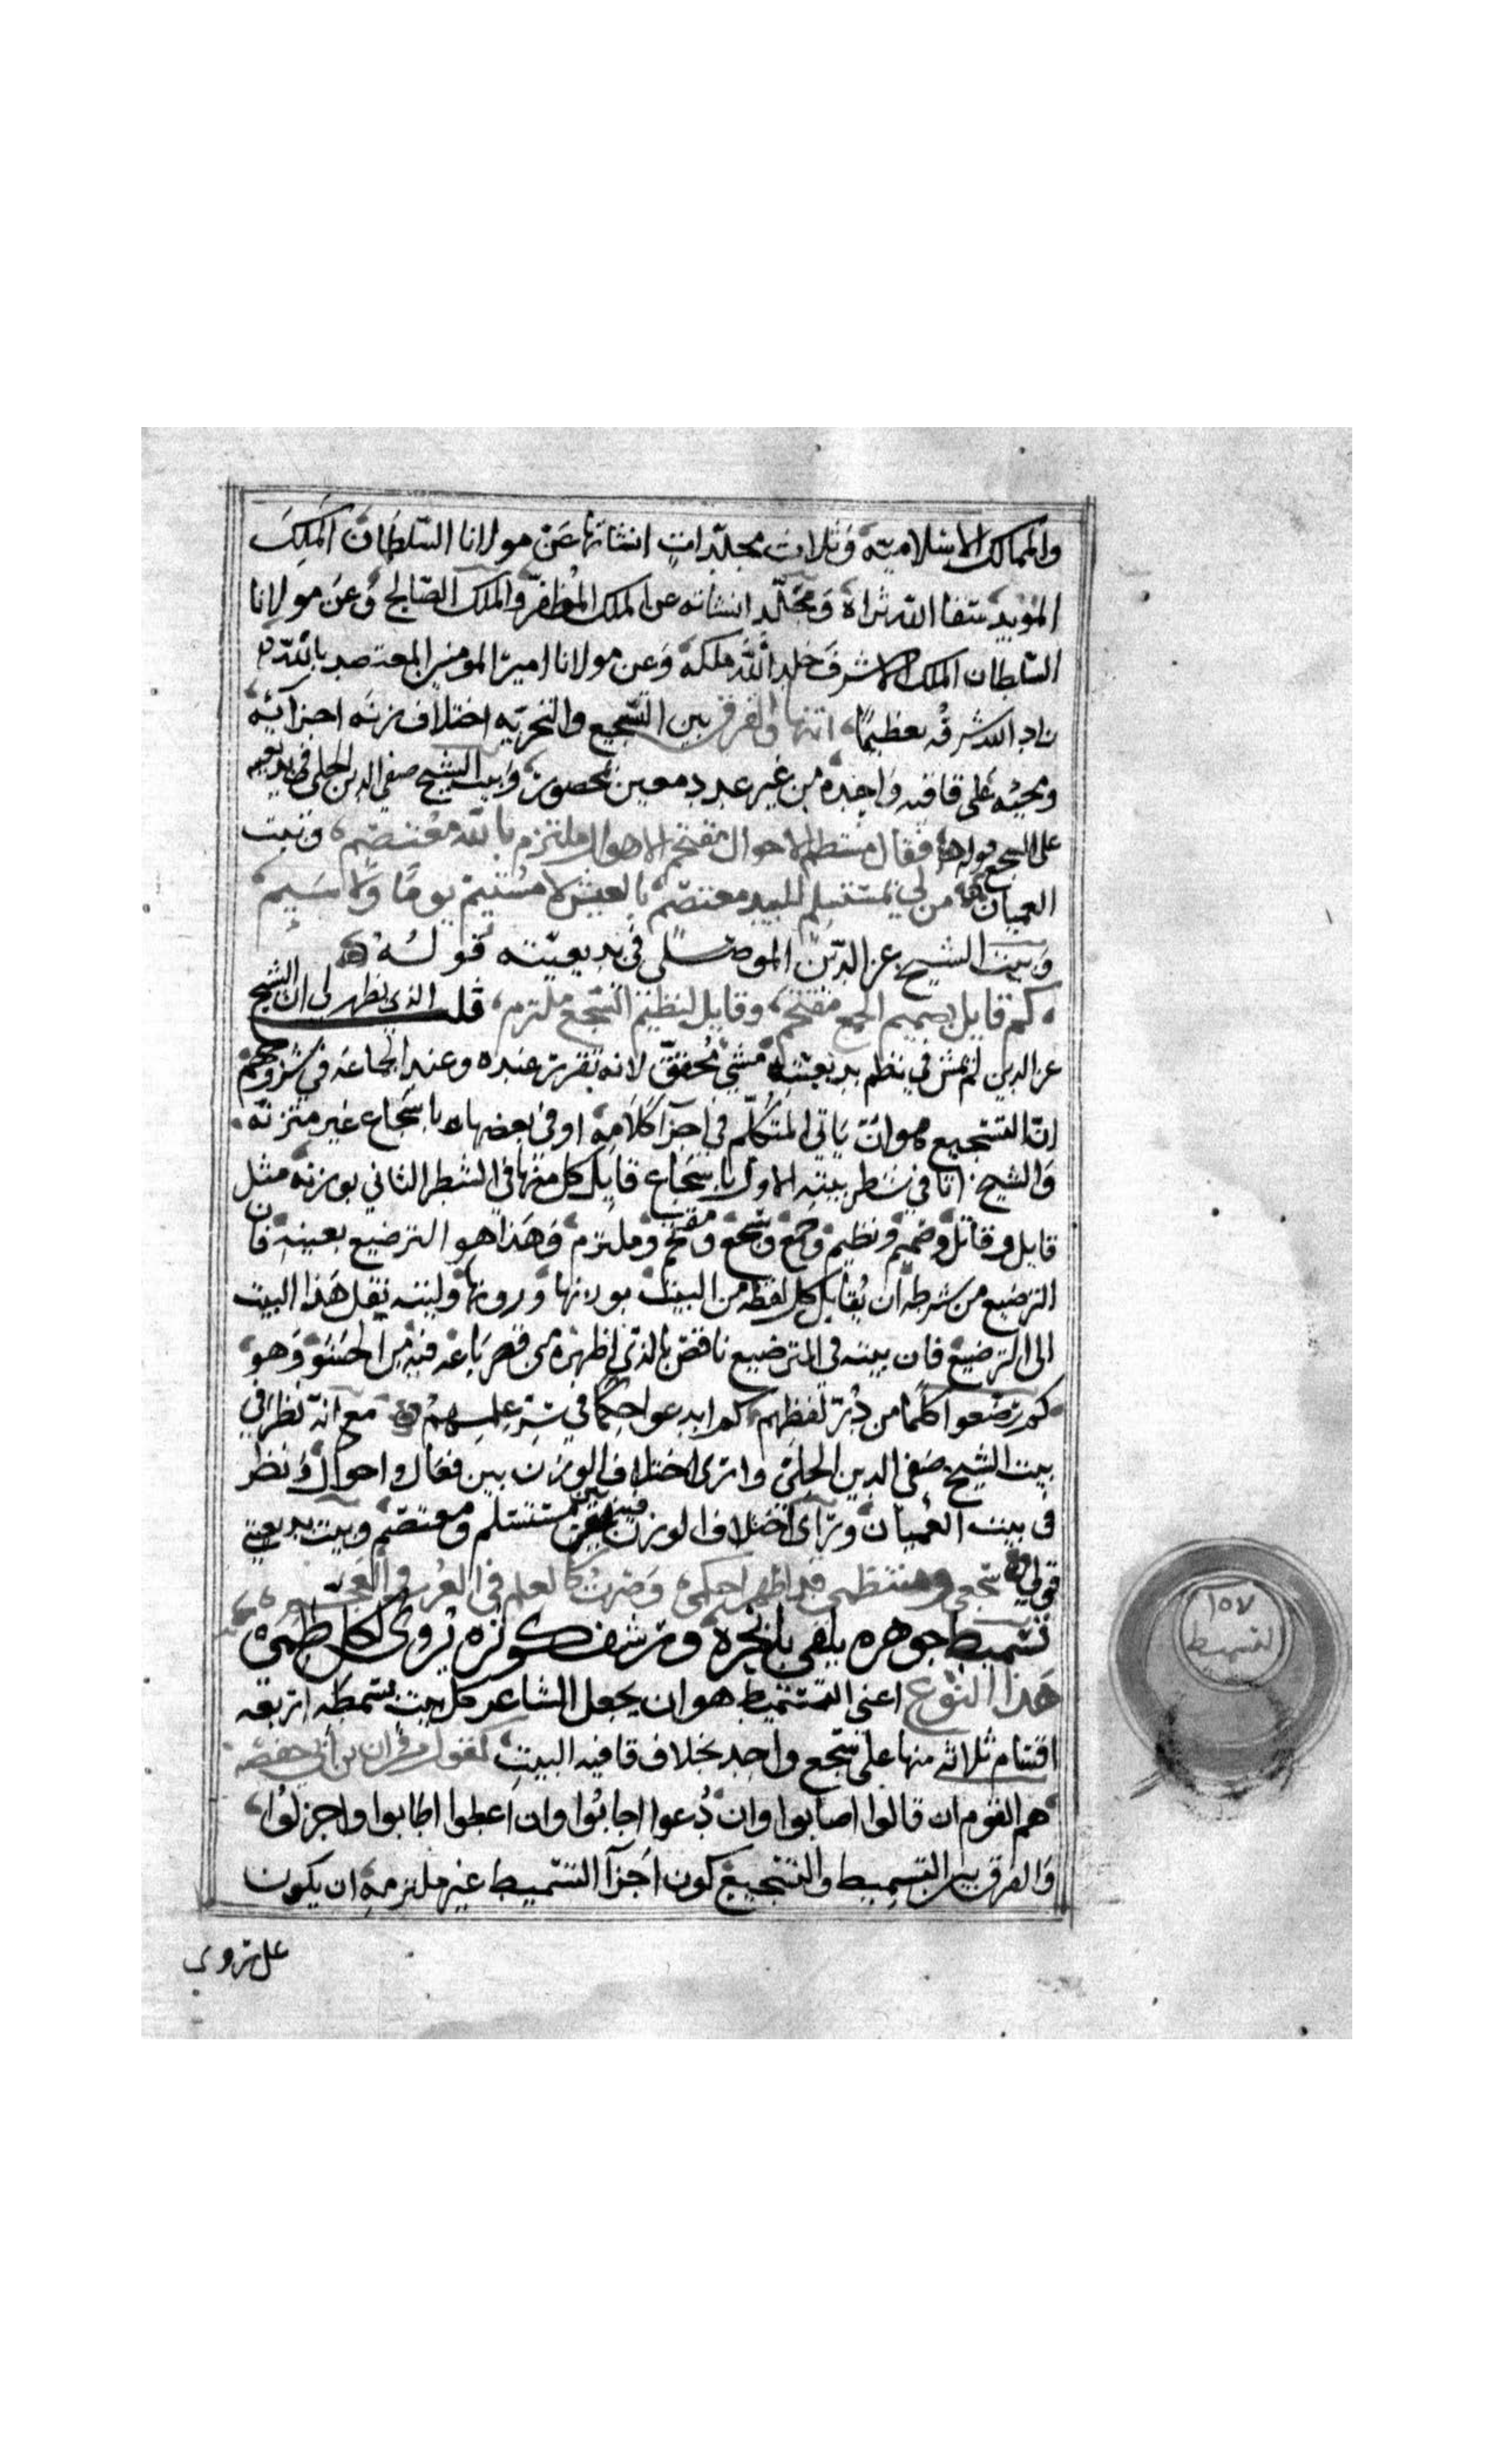 والممالك الاسلامية وثلاث مجلدات انشاتها عن مولانا السلطان الملك
المؤيد سقا الله ثراه ومجلد انشاته عن الملك المظفر والملك الصالح وعن مولانا
السلطان الملك الاشرف خلد الله ملكه وعن مولانا امير المومنين المعتضد بالله
زاد الله شرفه تعظيما انتها والفرق بين التسجيع والتجزيه اختلاف زنه اجزائه
ومجيئه على قافيه واحده من غير عدد معين محصور وبيت الشيخ صفي الدين الحلي في بديعيته
على السجع قوله فعال منتظم الاحوال مقتحم الاهوال ملتزم بالله معتصم وبيت
العميان من لي بمستسلم للبيد معتصم بالعيش لا مسئم يوما ولا سئم
وبيت الشيخ عز الدين الموصلي في بديعيته قوله
كم قايل بصميم الجمع مفتخم وقايل لنظيم السجع ملتزم قلت الذي يظهر لي ان الشيخ
عز الدين لم يمش في نظم بديعيته مشي محقق لانه تقرر عنده وعند الجماعه في شروحهم
ان التسجيع هو ان ياتي المتكلم في اجزا كلامه او في بعضها باسجاع غير متزنه
والشيخ اتا في شطر بيته الاول باسجاع قابل كل منها في الشطر الثاني بوزنه مثل
قايل وقاتل وصميم ونظيم وجمع وسجع ومقتحم وملتزم وهذا هو الترصيع بعينه فان
الترصيع من شرطه ان يقابل كل لفظه من البيت بوزنها ورويها وليته نقل هذا البيت
الى الترصيع فان بيته في الترصيع ناقص بالذي اظهره من قصر باعه فيه من الحشو وهو
كم رصعوا كلما من در لفظهم كم ابدعوا حكما في سر علمهم مع انه نظر في
بيت الشيخ صفي الدين الحلي وارى اختلاف الوزن بين فعال واحوال ونظر
في بيت العميان وراى اختلاف الوزن بين مستسلم ومعتصم وبيت بديعيتي
قولي سجعي ومنتظمي قد اظهرا حكمي وصرت كالعلم في العرب والعجم
تسميط جوهره يلقى بابحره ورشف كوثره يروى لكل ظمي
هذا النوع اعني التسميط هو ان يجعل الشاعر كل بيت بسمطه اربعه
اقسام ثلاثه منها على سجع واحد بخلاف قافيه البيت كقول مروان بن ابي حفصه
هم القوم ان قالوا اصابوا وان دعوا اجابوا وان اعطوا اطابوا واجزلوا
والفرق بين التسميط والتسجيع كون اجزا التسميط غير ملتزمه ان يكون
على روى
١٥٧
التسميط